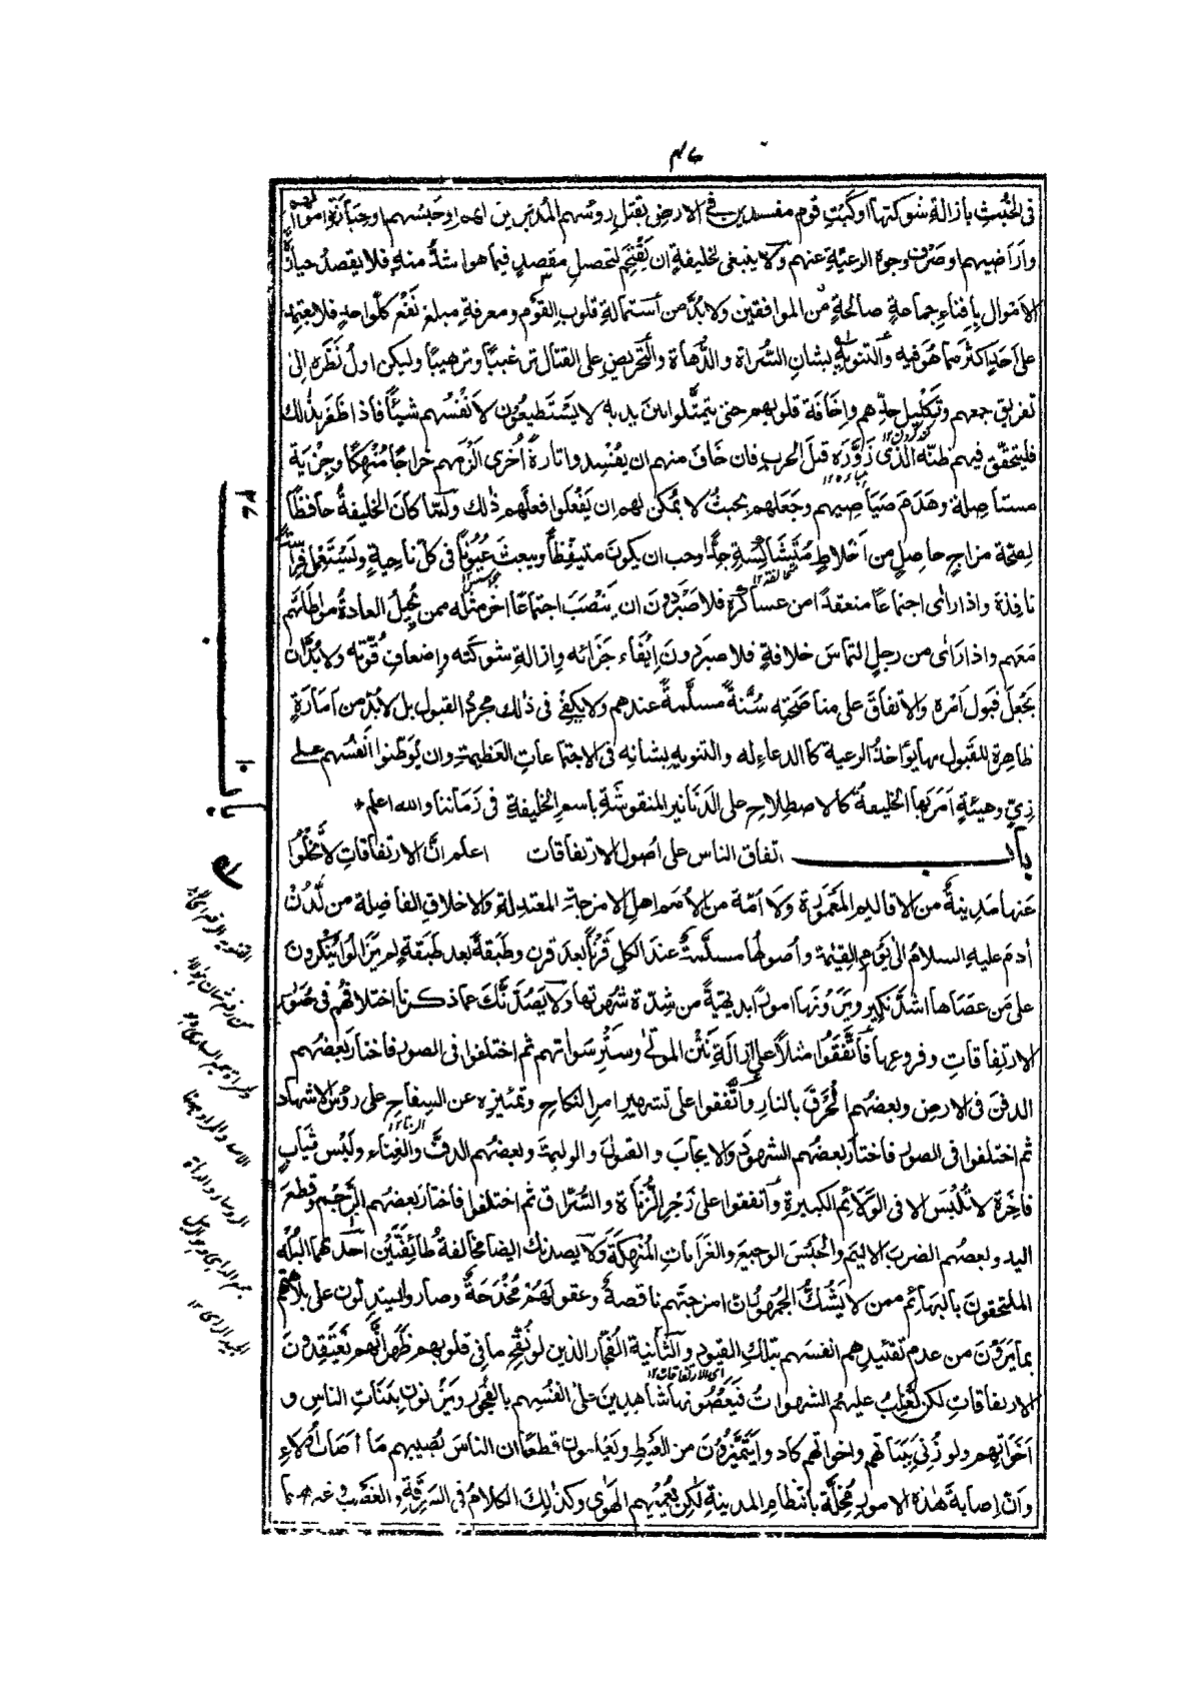 ٤٧
فى الخُبثِ بازالةِ شوكتها او كَبْتِ قومٍ مفسدين فى الارضِ بقتلِ رؤسهم المُدبّرين لهم او حَبْسهم او حِيَازةِ اموالهم
واَراضيهم او صَرْفِ وجوه الرعيَّةِ عنهم ولا ينبغى لخليفةٍ ان يَقْتحِم لتحصيلِ مقصدٍ فيما هو اشدُّ منه فلا يقصدُ حيازة
الاموال بإفناءِ جماعةٍ صالحةٍ من الموافقين ولا بُدَّ من استمالةِ قلوبِ القومِ ومعرفةِ مبلغ نفْعِ كلِّ واحدٍ فلا يعتمِدُ
على اَحدٍ اكثرَ مما هُوَ فيه والتنويهِ بشانِ السُّراة والدُّهاة والتحريضِ على القتال ترغيبًا وترهيبًا وليكن اولُ نظره الى
تفريق جمعهم وتكليلِ حدِّهم وإخافةِ قلوبهم حتى يتمثَّلوا بين يديه لا يستطيعون لانفُسهم شيئًا فاذا ظفَر بذلك
فليتحقّق فيهم ظنّه الذى زَوَّرَه قبلَ الحرب فان خافَ منهم ان يفسدوا تارةً اُخرى الزمهم خراجًا مُنْهِكًا وجزيةً
مستاصلةً وهَدَمَ صَيَاصِيهم وجَعَلهم بحيثُ لا يمكن لهم ان يفعلوا فعلَهم ذٰلك ولمّا كان الخليفةُ حافظًا
لصحّة مزاجٍ حاصلٍ من اَخلاطٍ مُتَشاكِسةٍ جدًّا وجب ان يكونَ متيقِّظًا ويبعثَ عُيُونًا فى كلّ ناحيةٍ ويَسْتعملَ فِراسةً
نافذة واذا راٰى اجتماعًا منعقدًا من عساكره فلا صَبْرَ دُونَ ان ينصَبَ اجتماعًا اٰخر مثلَه ممن تُحيل العادةُ مواطاتَهم
مَعَهم واذا راٰى من رجلٍ التماسَ خلافةٍ فلا صبرَ دونَ اِيْفاءِ جَزائه وازالةِ شوكته واِضعافِ قوّته ولا بُدّ ان
يَجْعلَ قبولَ اَمْرِه والاتفاقَ على مناصَحتِه سُنّةً مسلّمةً عندهم ولا يَكفِى فى ذلك مجرّدُ القبول بل لا بُدَّ من اَمارةٍ
ظاهرةٍ للقبول بها يؤاخذُ الرعيةُ كالدعاءِ له والتنويهِ بشانِه فى الاجتماعاتِ العَظيمةِ وان يُوَطِّنوا اَنفُسَهم على
زِىٍّ وهيئةٍ اَمَر بها الخليفةُ كالاصطلاحِ على الدَنانيرِ المنقوشةِ باسمِ الخليفةِ فى زَماننا والله اعلم
بابــــــ اتفاق الناس على اُصول الارتفاقات اعلم انّ الارتفاقاتِ لا تخلُوا
عنها مَدينةٌ من الاقاليم المَعْمورة ولَا اُمّة من الاُمَم اهلِ الامزجة المعتدلةِ والاخلاقِ الفاضِلة من لَدُنْ
اٰدم عليه السلامُ الٰى يَوْمِ القِيٰمة واُصولُها مسلّمةٌ عندَ الكل قَرْنًا بعدَ قرن وطبقةً بعد طبقةٍ لم يَزالوا يُنْكرون
على مَن عَصَاها اشدَّ نكيرٍ ويَرَوْنَها امورًا بديهيّةً من شِدّة شُهرتها ولا يَصُدَّنَّك عما ذكرنا اختلافُهم فى صُوَر
الارتفاقاتِ وفروعِها فاتّفَقُوا مثلاً على ازالةِ نَتْن الموتٰى وسَتْرِ سَواٰتهم ثم اختلفُوا فى الصور فاختارَ بعضُهم
الدفنَ فى الارضِ وبعضُهم الحَرْقَ بالنارِ واتَّفقوا على تشهيرِ امرِ النكاحِ وتمْييزه عن السِفاحِ على رؤسِ الاشهاد
ثم اختلفوا فى الصور فاختارَ بعضُهم الشهودَ والايجابَ والقبولَ والوليمةَ وبعضُهم الدفَّ والغِناءَ ولُبْسَ ثيابٍ
فاخِرة لا تُلْبَسُ الا فى الوَلائم الكبيرةِ واتفقوا على زَجْرِ الزُّناة والسُرّاق ثم اختلفوا فاختارَ بعضُهم الرَّجْمَ وقطعَ
اليد وبعضُهم الضربَ الاليمَ والحَبْسَ الوجيعَ والغَراماتِ المُنهِكةَ ولا يصدنك ايضًا مخالفةُ طائفتَيْن احدٰهما البُلْهُ
الملتحقونَ بالبهائم ممن لا يَشُكُّ الجُمهورُ ان امزجتَهم ناقصةٌ وعقولَهُمْ مُخْدَجَةٌ وصاروا يستدلّون على بَلاهَتهم
بما يَرَوْنَ من عدم تقييدِهم انفسَهم بتلك القيود والثانيةُ الفُجّار الذين لو نُقِّحَ ما فى قلوبهم ظهر انّهم يَعْتقدون
الارتفاقاتِ لكن تَغْلِبُ عليهم الشهواتُ فيَعْصُونها شاهدينَ علٰى انفُسهم بالفُجور ويَزْنون ببَناتِ الناس و
اَخَواتِهم ولو زُنِىَ ببَناتهم واخواتهم كادوا يَتَميَّزون من الغَيْظِ ويَعْلمون قطعًا ان الناسَ يُصيبهم ما اَصابَ اولاءِ
وانّ اِصابةَ هٰذه الامور مُخِلَّة بانتظامِ المدينةِ لٰكِن يُعْمِيهم الهَوٰى وكذٰلك الكلامُ فى السَرِقةِ والغَصْبِ وغيرهما
باب